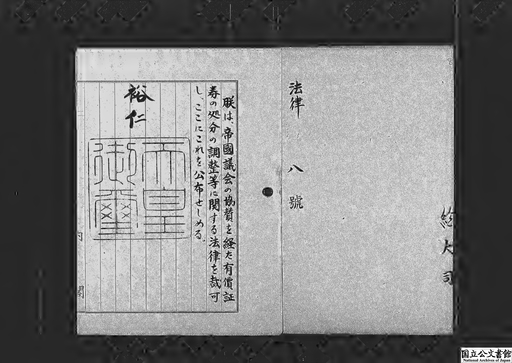 法律 八號
朕は、帝國議会の協賛を経た有價証
券の処分の調整等に関する法律を裁可
し、ここにこれを公布せしめる。
裕仁
天皇御璽
内 閣
国立公文書館
National Archives of Japan